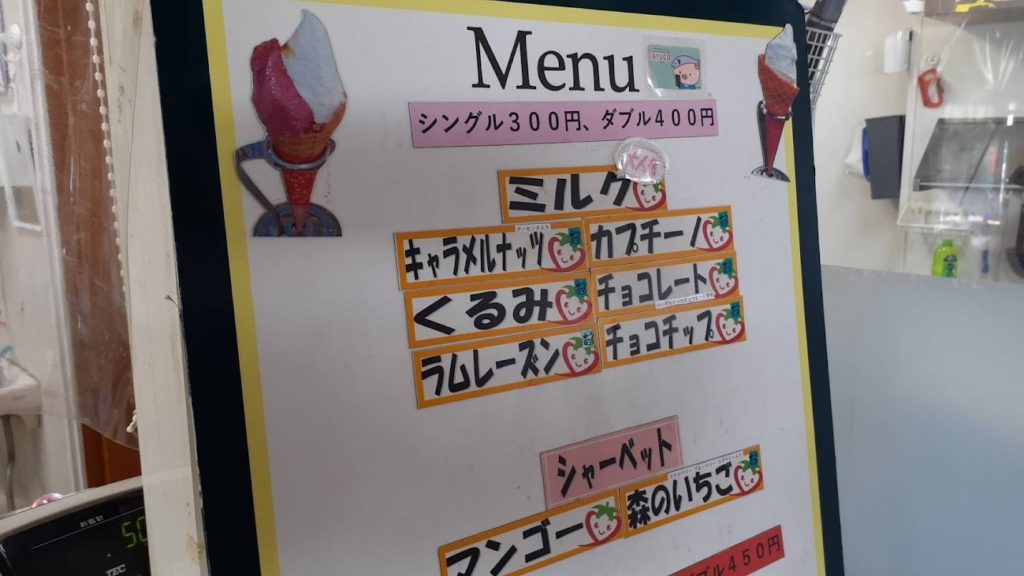 Menu
AYUCO
シングル300円、ダブル400円
ミルク
キャラメルナッツ
カプチーノ
くるみ
チョコレート
ラムレーズン
チョコチップ
シャーベット
マンゴー
森のいちご
ダブル450円
お会計
TEC